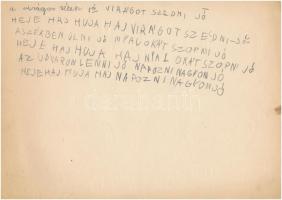 a virágos réten is VIRÁGOT SZEDNI JÓ
HEJE HAJ HUJA HAJ VIRÁGOT SZEDNI JÓ
A SZÉKBEN ÜLNI JÓ NYALÓKÁT SZOPNI JÓ
HEJE HAJ HUJA HAJ NYALÓKÁT SZOPNI JÓ
AZ UDVARON LENNI JÓ NAPOZNI NAGYON JÓ
HEJE HAJ HUJA HAJ NAPOZNI NAGYON JÓ
darabanth